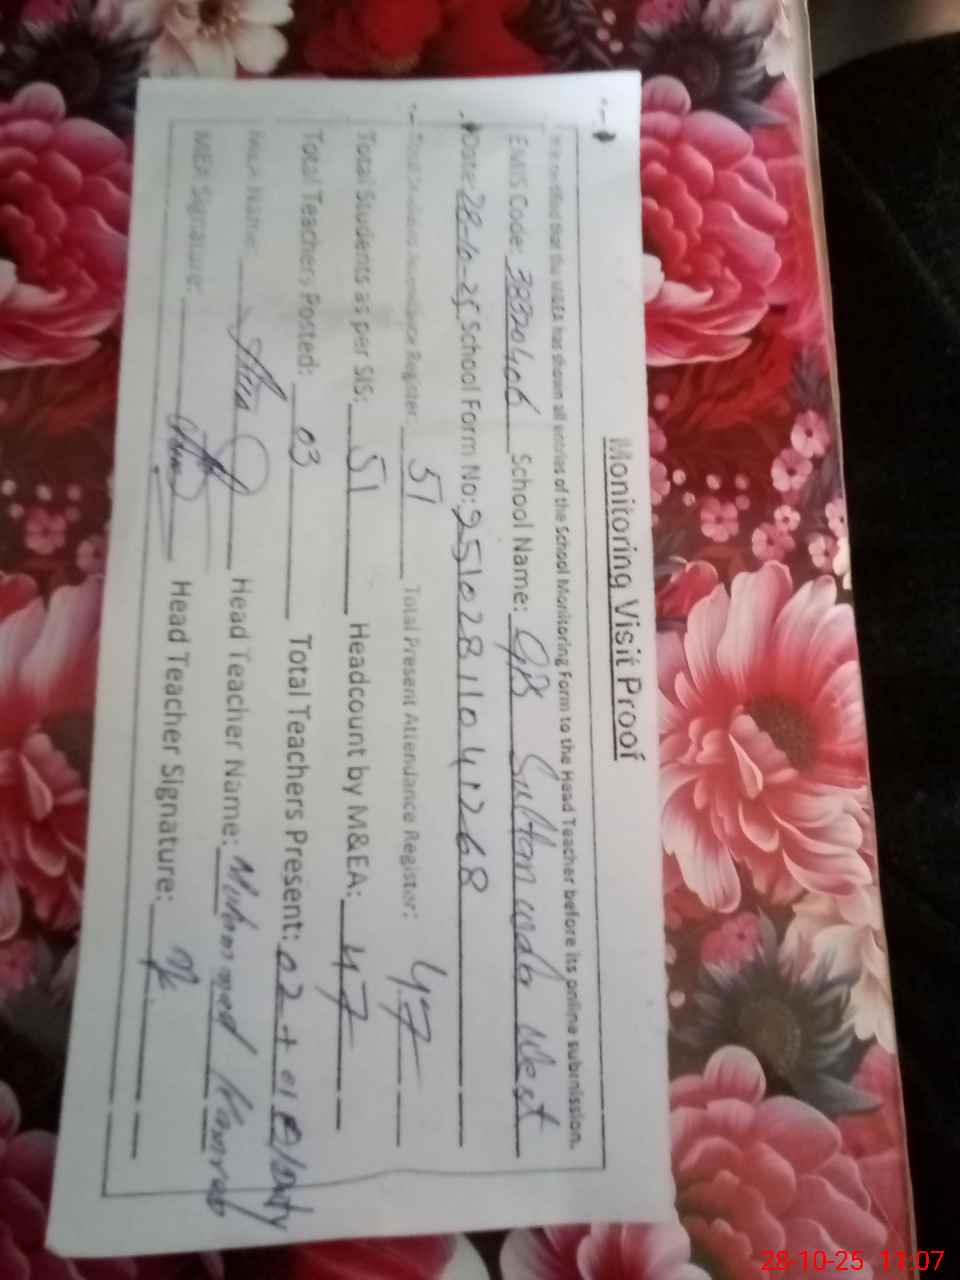 Monitoring Visit Proof
It is certified that the MEA has shown all entries of the School Monitoring Form to the Head Teacher before its online submission.
EMIS Code: 38320406 School Name: GB Sultan wala West
Date: 28-10-25 School Form No: 25102811041268
Total Students Attendance Register: 51 Total Present Attendance Register: 47
Total Students as per SIS: 51 Headcount by M&EA: 47
Total Teachers Posted: 03 Total Teachers Present: 02 + 01 O/Duty
MEA Name: Head Teacher Name: Muhammad Kamran
MEA Signature: Head Teacher Signature:
28-10-25 11:07